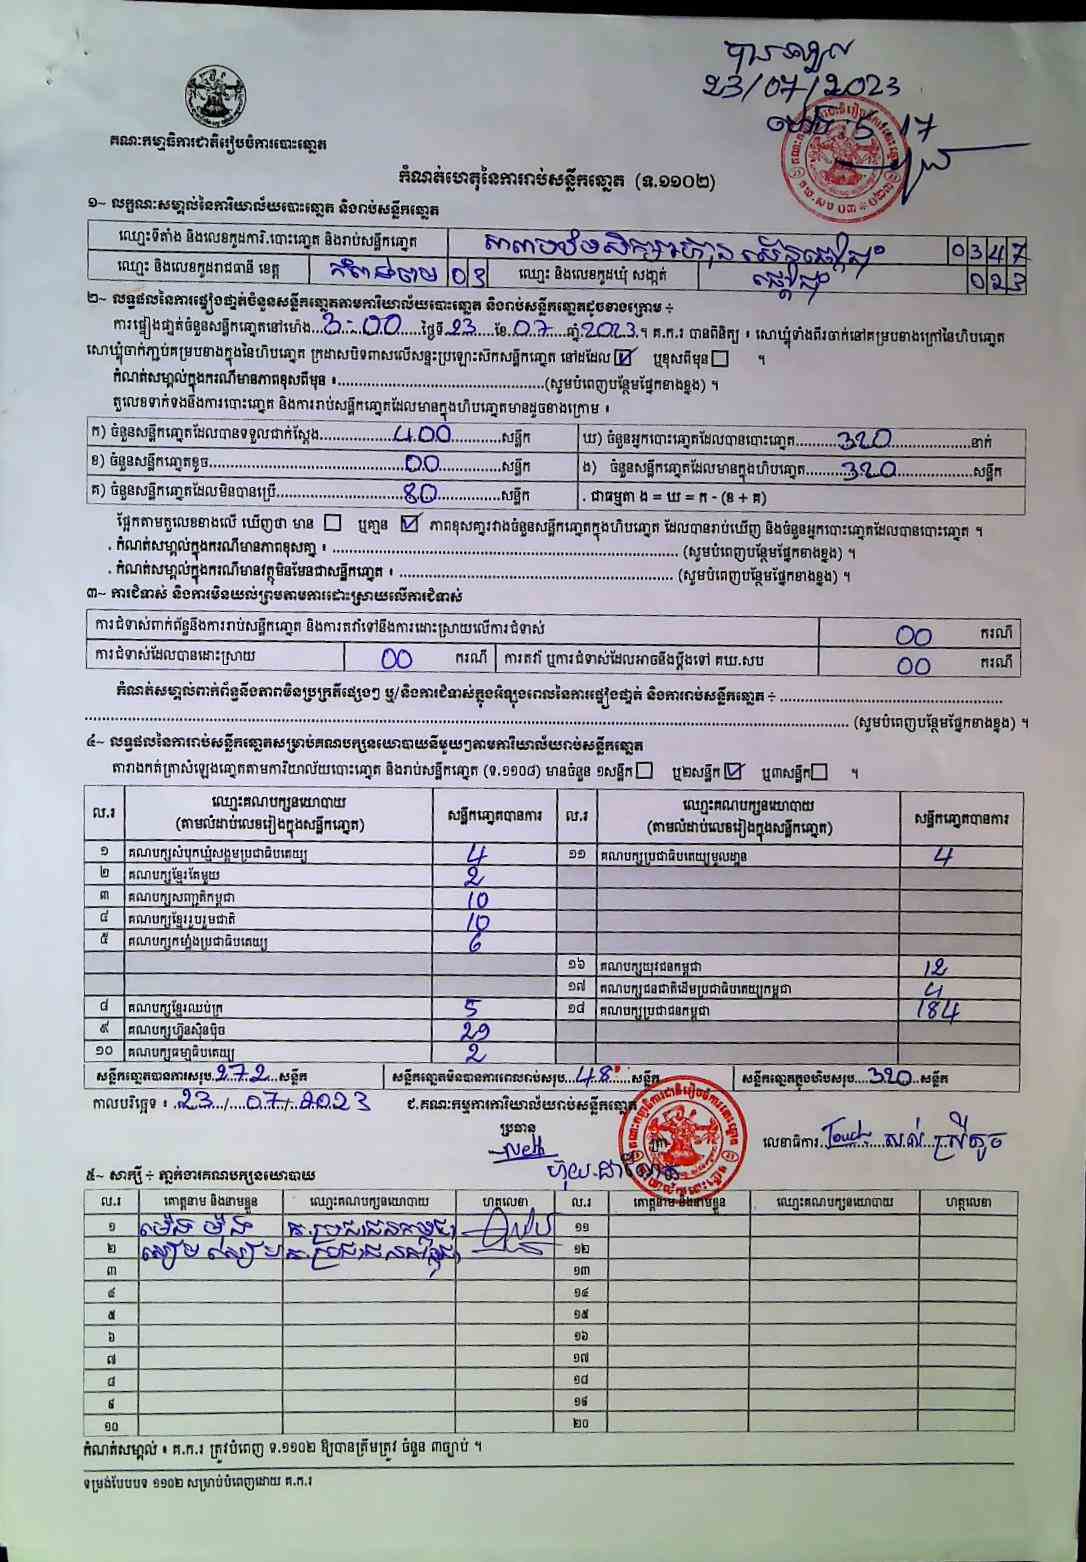 បានទទួល
23/07/2023
ម៉ោង 5:17
គណៈកម្មាធិការជាតិរៀបចំការបោះឆ្នោត
កំណត់ហេតុនៃការរាប់សន្លឹកឆ្នោត (ទ.១១០២)
១~ លក្ខណៈសម្គាល់នៃការិយាល័យបោះឆ្នោត និងរាប់សន្លឹកឆ្នោត
ឈ្មោះទីតាំង និងលេខកូដការិ.បោះឆ្នោត និងរាប់សន្លឹកឆ្នោត 0347
ឈ្មោះ និងលេខកូដរាជធានី ខេត្ត កំពង់ចាម 03 ឈ្មោះ និងលេខកូដឃុំ សង្កាត់ 023
២~ លទ្ធផលនៃការផ្ទៀងផ្ទាត់ចំនួនសន្លឹកឆ្នោតតាមការិយាល័យបោះឆ្នោត និងរាប់សន្លឹកឆ្នោតដូចខាងក្រោម ÷
ការផ្ទៀងផ្ទាត់ចំនួនសន្លឹកឆ្នោតនៅម៉ោង 3-00 ថ្ងៃទី 23 ខែ 07 ឆ្នាំ 2023 ។ គ.ក.រ បានពិនិត្យ ៖ សោឃ្មុំទាំងពីរចាក់នៅគម្របខាងក្រៅនៃហិបឆ្នោត
សោឃ្មុំចាក់ភ្ជាប់គម្របខាងក្នុងនៃហិបឆ្នោត ក្រដាសបិទពាសលើសន្ទះប្រឡោះស៊កសន្លឹកឆ្នោត នៅដដែល ☑ ឬខុសពីមុន ☐ ។
កំណត់សម្គាល់ក្នុងករណីមានភាពខុសពីមុន ៖ (សូមបំពេញបន្ថែមផ្នែកខាងខ្នង) ។
តួលេខទាក់ទងនឹងការបោះឆ្នោត និងការរាប់សន្លឹកឆ្នោតដែលមានក្នុងហិបឆ្នោតមានដូចខាងក្រោម ៖
ក) ចំនួនសន្លឹកឆ្នោតដែលបានទទួលជាក់ស្ដែង 400 សន្លឹក ឃ) ចំនួនអ្នកបោះឆ្នោតដែលបានបោះឆ្នោត 320 នាក់
ខ) ចំនួនសន្លឹកឆ្នោតខូច 00 សន្លឹក ង) ចំនួនសន្លឹកឆ្នោតដែលមានក្នុងហិបឆ្នោត 320 សន្លឹក
គ) ចំនួនសន្លឹកឆ្នោតដែលមិនបានប្រើ 80 សន្លឹក . ជាធម្មតា ង = ឃ = ក - (ខ + គ)
ផ្អែកតាមតួលេខខាងលើ ឃើញថា មាន ☐ ឬគ្មាន ☑ ភាពខុសគ្នារវាងចំនួនសន្លឹកឆ្នោតក្នុងហិបឆ្នោត ដែលបានរាប់ឃើញ និងចំនួនអ្នកបោះឆ្នោតដែលបានបោះឆ្នោត ។
. កំណត់សម្គាល់ក្នុងករណីមានភាពខុសគ្នា ៖ (សូមបំពេញបន្ថែមផ្នែកខាងខ្នង) ។
. កំណត់សម្គាល់ក្នុងករណីមានវត្ថុមិនមែនជាសន្លឹកឆ្នោត ៖ (សូមបំពេញបន្ថែមផ្នែកខាងខ្នង) ។
៣~ ការជំទាស់ និងការមិនយល់ព្រមតាមការដោះស្រាយលើការជំទាស់
ការជំទាស់ពាក់ព័ន្ធនឹងការរាប់សន្លឹកឆ្នោត និងការតវ៉ាទៅនឹងការដោះស្រាយលើការជំទាស់ 00 ករណី
ការជំទាស់ដែលបានដោះស្រាយ 00 ករណី ការតវ៉ា ឬការជំទាស់ដែលអាចនឹងប្ដឹងទៅ គឃ.សប 00 ករណី
កំណត់សម្គាល់ពាក់ព័ន្ធនឹងភាពមិនប្រក្រតីផ្សេងៗ ឬ/និងការជំទាស់ក្នុងអំឡុងពេលនៃការផ្ទៀងផ្ទាត់ និងការរាប់សន្លឹកឆ្នោត ÷
(សូមបំពេញបន្ថែមផ្នែកខាងខ្នង) ។
៤~ លទ្ធផលនៃការរាប់សន្លឹកឆ្នោតសម្រាប់គណបក្សនយោបាយនីមួយៗតាមការិយាល័យរាប់សន្លឹកឆ្នោត
តារាងកត់ត្រាសំឡេងឆ្នោតតាមការិយាល័យបោះឆ្នោត និងរាប់សន្លឹកឆ្នោត (ទ.១១០៨) មានចំនួន ១សន្លឹក ☐ ឬ២សន្លឹក ☑ ឬ៣សន្លឹក ☐ ។
ល.រ ឈ្មោះគណបក្សនយោបាយ (តាមលំដាប់លេខរៀងក្នុងសន្លឹកឆ្នោត) សន្លឹកឆ្នោតបានការ ល.រ ឈ្មោះគណបក្សនយោបាយ (តាមលំដាប់លេខរៀងក្នុងសន្លឹកឆ្នោត) សន្លឹកឆ្នោតបានការ
១ គណបក្សសំបុកឃ្មុំសង្គមប្រជាធិបតេយ្យ 4 ១១ គណបក្សប្រជាធិបតេយ្យមូលដ្ឋាន 4
២ គណបក្សខ្មែរតែមួយ 2
៣ គណបក្សសញ្ជាតិកម្ពុជា 10
៤ គណបក្សខ្មែររួបរួមជាតិ 10
៥ គណបក្សកម្លាំងប្រជាធិបតេយ្យ 6
១៦ គណបក្សយុវជនកម្ពុជា 12
១៧ គណបក្សជនជាតិដើមប្រជាធិបតេយ្យកម្ពុជា 4
៨ គណបក្សខ្មែរឈប់ក្រ 5 ១៨ គណបក្សប្រជាជនកម្ពុជា 184
៩ គណបក្សហ៊្វុនស៊ិនប៉ិច 29
១០ គណបក្សធម្មាធិបតេយ្យ 2
សន្លឹកឆ្នោតបានការសរុប 272 សន្លឹក សន្លឹកឆ្នោតមិនបានការពេលរាប់សរុប 48 សន្លឹក សន្លឹកឆ្នោតក្នុងហិបសរុប 320 សន្លឹក
កាលបរិច្ឆេទ ៖ 23/07/2023 ជ.គណៈកម្មការការិយាល័យរាប់សន្លឹកឆ្នោត
ប្រធាន លេខាធិការ
៥~ សាក្សី ÷ ភ្នាក់ងារគណបក្សនយោបាយ
ល.រ គោត្តនាម និងនាមខ្លួន ឈ្មោះគណបក្សនយោបាយ ហត្ថលេខា ល.រ គោត្តនាម និងនាមខ្លួន ឈ្មោះគណបក្សនយោបាយ ហត្ថលេខា
១ គ.ប្រជាជនកម្ពុជា ១១
២ គ.ប្រជាជនកម្ពុជា ១២
៣ ១៣
៤ ១៤
៥ ១៥
៦ ១៦
៧ ១៧
៨ ១៨
៩ ១៩
១០ ២០
កំណត់សម្គាល់ ៖ គ.ក.រ ត្រូវបំពេញ ទ.១១០២ ឱ្យបានត្រឹមត្រូវ ចំនួន ៣ច្បាប់ ។
ទម្រង់បែបបទ ១១០២ សម្រាប់បំពេញដោយ គ.ក.រ